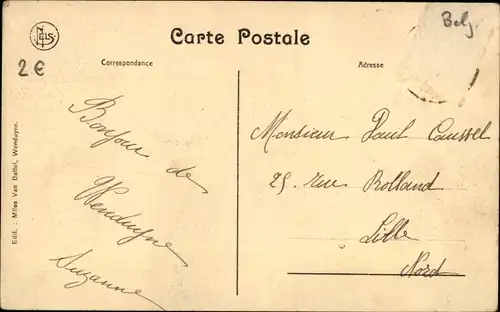 NELS
Carte Postale
Belg.
2 €
Correspondance
Adresse
Bonjour de
Wenduyne
Suzanne
Monsieur Paul Caussel
25, rue Rolland
Lille
Nord
Edit. : Mlles Van Battel, Wenduyne.